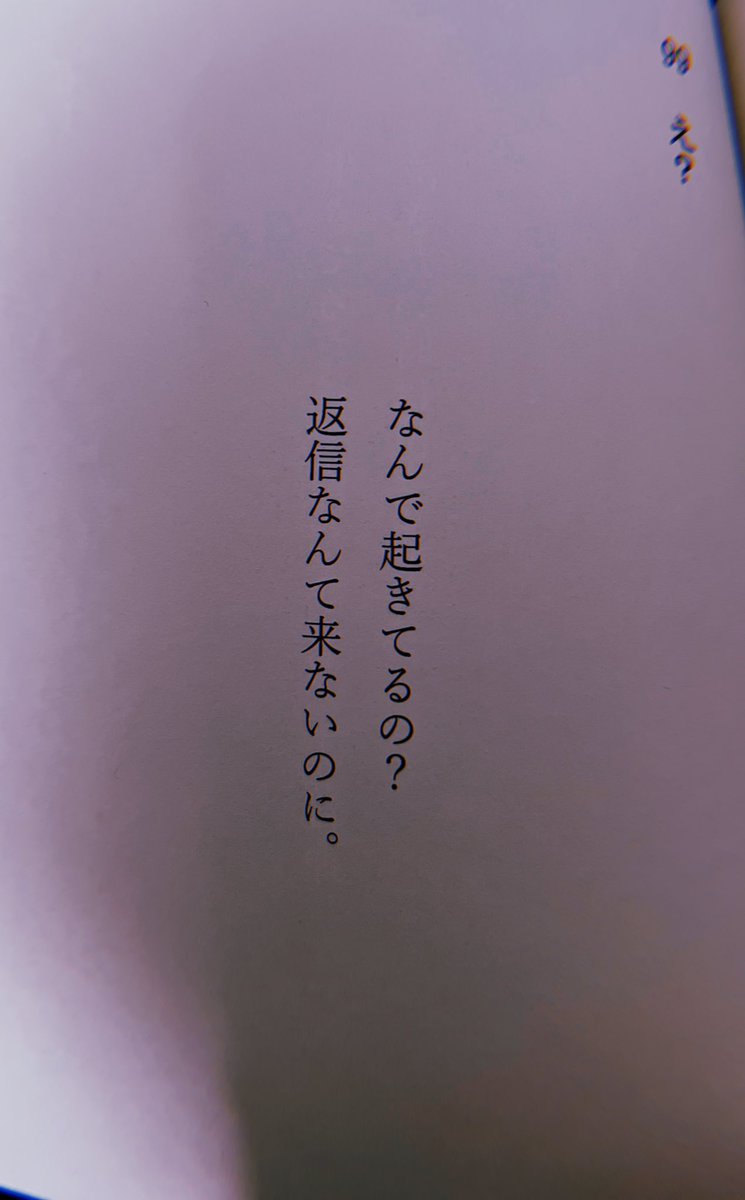 え?
なんで起きてるの?
返信なんて来ないのに。